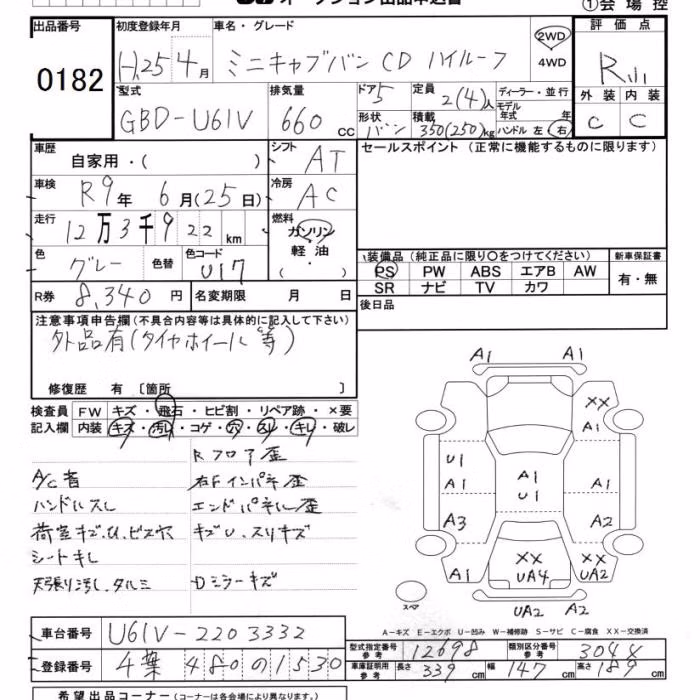 オークション出品申込書
①会場控
出品番号 0182
初度登録年月 H.25 4月
車名・グレード ミニキャブバン CD ハイルーフ
2WD
4WD
評価点 R
型式 GBD-U61V
排気量 660 cc
ドア 5
形状 バン
定員 2(4)人
積載 350(250)kg
ディーラー・並行
モデル年式 年
ハンドル 左 右
外装 C
内装 C
車歴 自家用・( )
シフト AT
セールスポイント (正常に機能するものに限ります)
車検 R9年 6月(25日)
冷房 AC
走行 12万3千922km
燃料 ガソリン
軽油
・( )
色 グレー
色替
色コード U17
装備品 (純正品に限り○をつけてください)
新車保証書
PS PW ABS エアB AW
SR ナビ TV カワ
有・無
R券 8,340円
名変期限 月 日
後日品
注意事項申告欄(不具合内容等は具体的に記入して下さい)
外品有(タイヤホイール等)
修復歴 有 〔箇所 〕
検査員記入欄
FW キズ・飛石・ヒビ割・リペア跡・×要
内装 キズ・汚れ・コゲ・穴・スレ・キレ・破レ
Rフロア歪
右Fインパネ歪
ハンドルスレ
エンドパネル歪
キズU.スリキズ
シートキレ
天張り汚レ.タルミ
Dミラーキズ
A1 A1
XX
A1
U1
A1
A1
U1
A1
A3
A2
XX
UA4
XX
UA2
A1
UA2 A2
スペア
A-キズ E-エクボ U-凹み W-補修跡 S-サビ C-腐食 XX-交換済
車台番号 U61V-2203332
型式指定番号 参考 12698
類別区分番号 参考 304X
登録番号 480 の 1530
車庫証明用 参考 長さ 339cm 幅 147cm 高さ 189cm
希望出品コーナー (コーナーは各会場により異なります。)